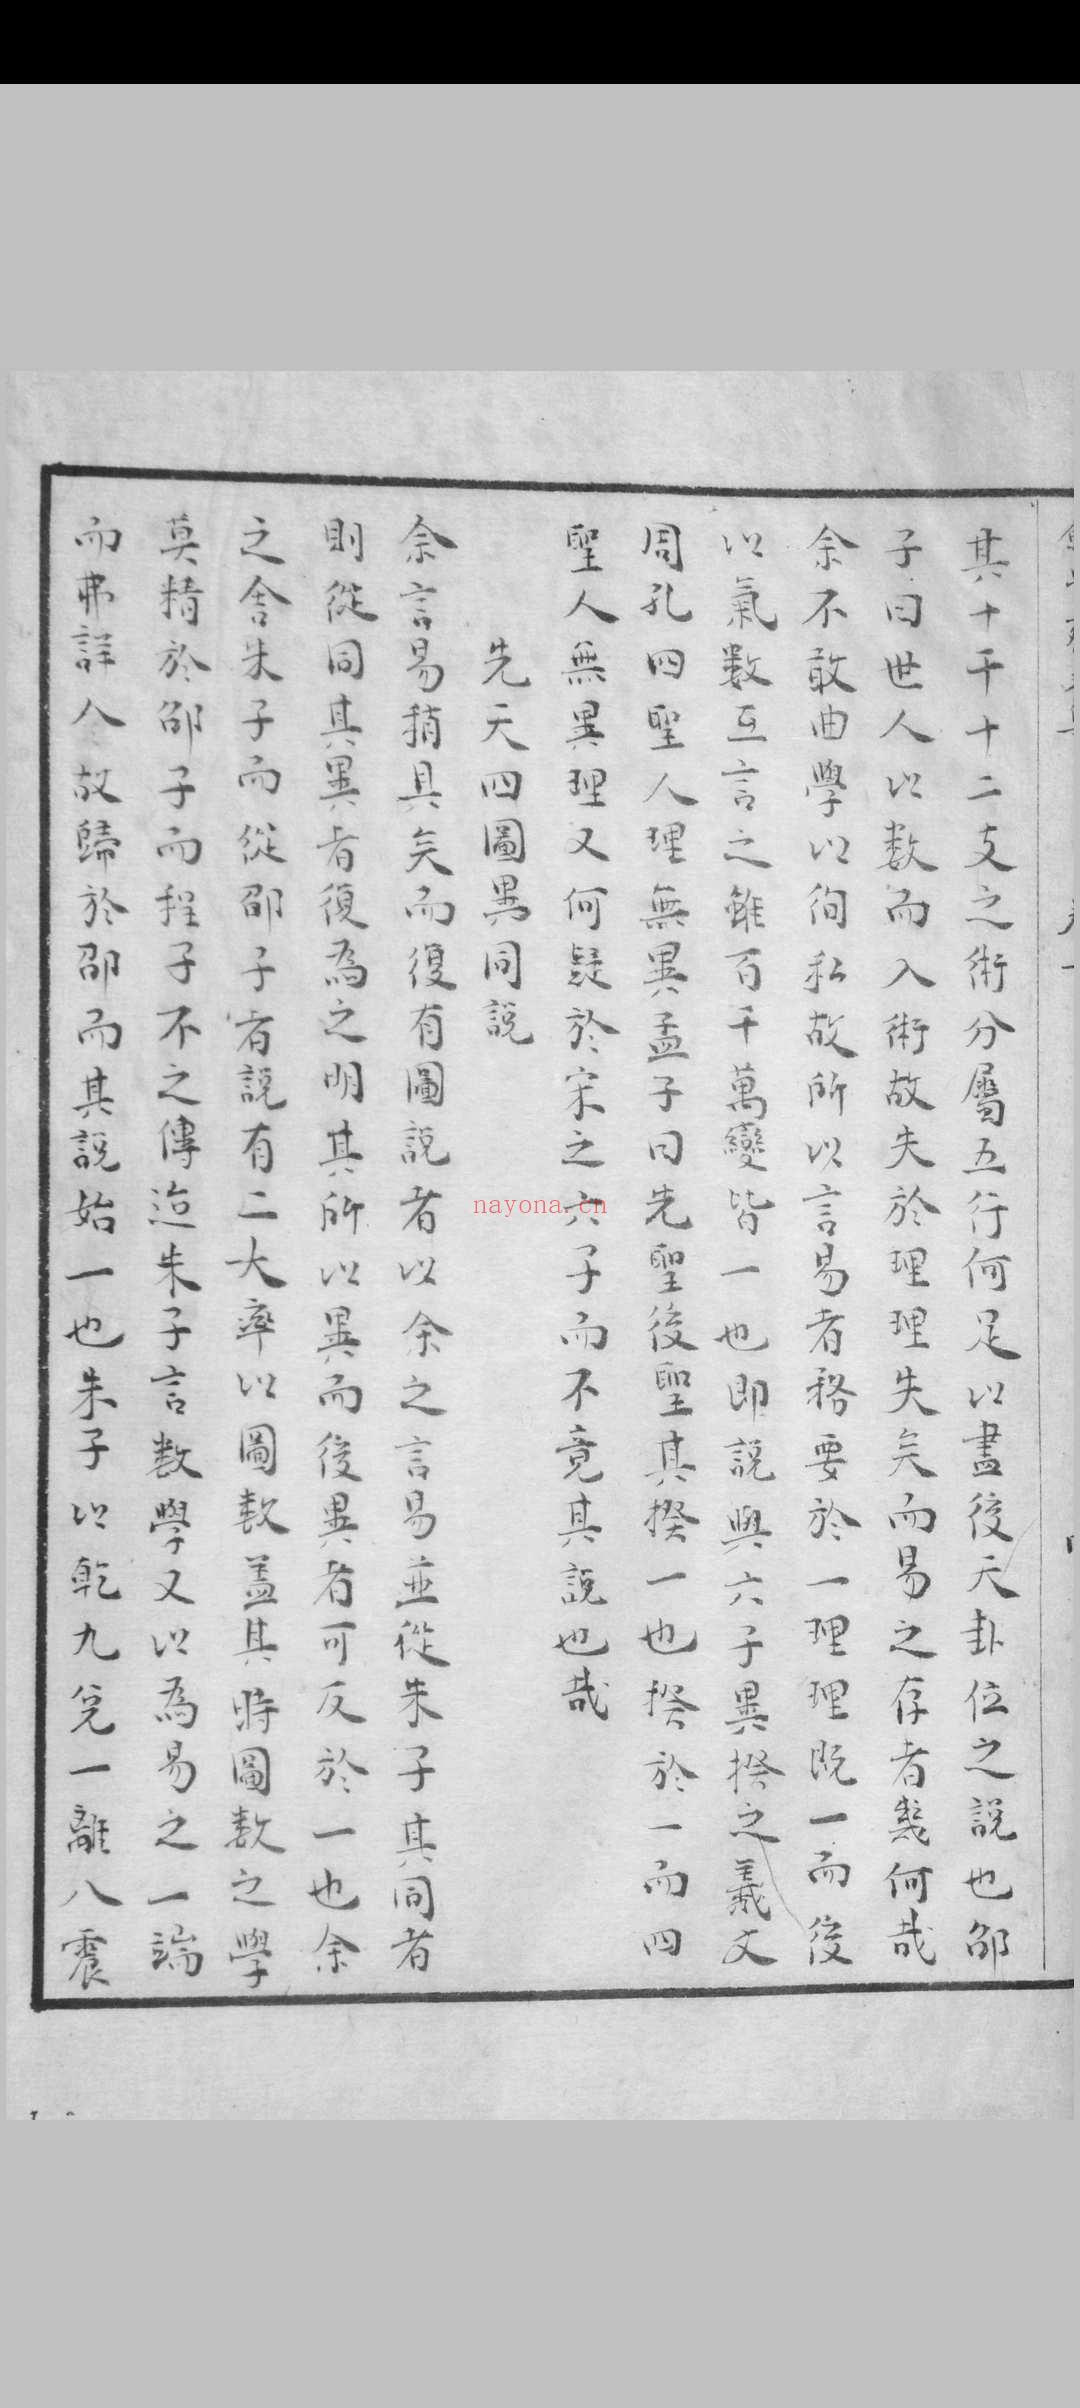 其十干十二支之術分屬五行何足以盡後天卦位之說也邵
子曰世人以数而入術故失於理理失矣而易之存者幾何哉
余不敢曲學以徇私故所以言易者務要於一理理既一而後
以氣数互言之雖百千萬變皆一也即說與六子異揆之羲文
周孔四聖人理無異孟子曰先聖後聖其揆一也揆於一而四
聖人無異理又何疑於宋之六子而不竟其說也哉
先天四圖異同說
余言易稍具矣而復有圖說者以余之言易並從朱子其同者
則從同其異者復為之明其所以異而後異者可反於一也余
之舍朱子而從邵子者說有二大率以圖数蓋其時圖数之學
莫精於邵子而程子不之傳迨朱子言数學又以為易之一端
而弗詳人故歸於邵而其說始一也朱子以乾九兌一離八震
nayona.cn